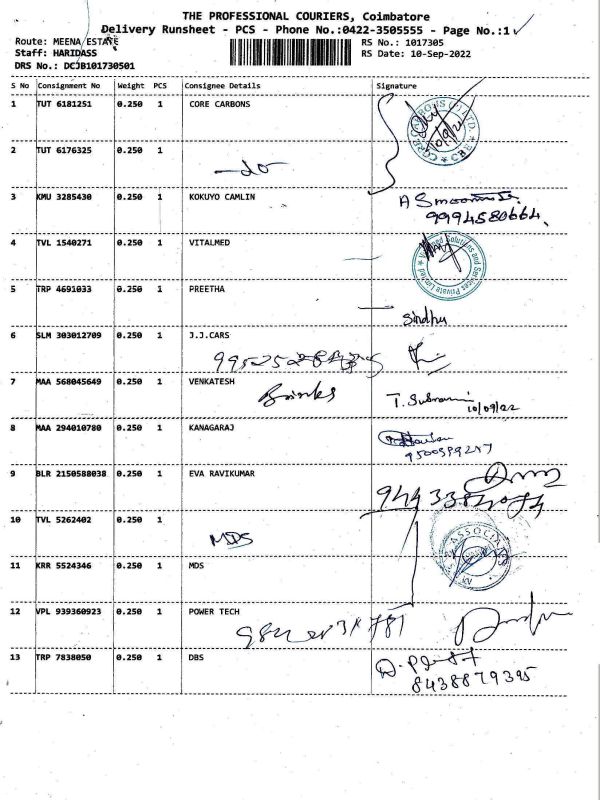 THE PROFESSIONAL COURIERS, Coimbatore
Delivery Runsheet - PCS - Phone No.:0422-3505555 - Page No.:1
Route: MEENA ESTATE
RS No.: 1017305
Staff: HARIDASS
RS Date: 10-Sep-2022
DRS No.: DCJB101730501
S No Consignment No Weight PCS Consignee Details Signature
1 TUT 6181251 0.250 1 CORE CARBONS
2 TUT 6176325 0.250 1 -do-
3 KMU 3285430 0.250 1 KOKUYO CAMLIN
9994580664
4 TVL 1540271 0.250 1 VITALMED
Solutions and Services Private Limited
5 TRP 4691033 0.250 1 PREETHA
Sindhu
6 SLM 303012709 0.250 1 J.J.CARS
7 MAA 568045649 0.250 1 VENKATESH
Brinks T. Subramani
10/09/22
8 MAA 294010780 0.250 1 KANAGARAJ
9 BLR 2150588038 0.250 1 EVA RAVIKUMAR
10 TVL 5262402 0.250 1
MDS
11 KRR 5524346 0.250 1 MDS
12 VPL 939360923 0.250 1 POWER TECH
13 TRP 7838050 0.250 1 DBS
8438879395